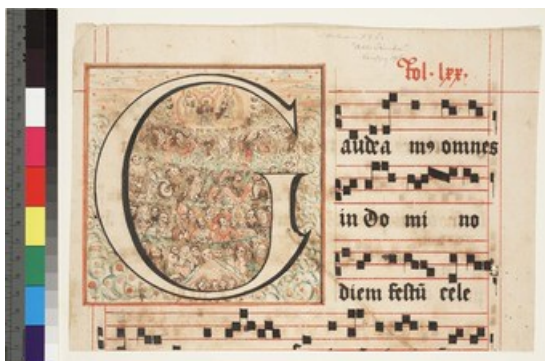 Fol. lxx.
G
audea mꝰ omnes
in Do mi no
diem festū cele